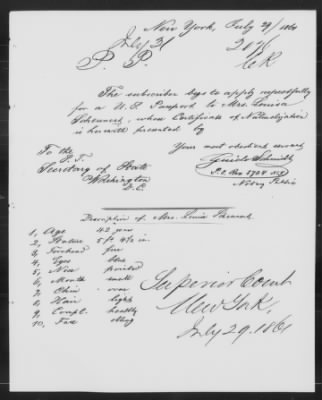 New York, July 29/ 1861
July 31
P. P.
The subscriber begs to apply respectfully
for a U. S. Passport to Mrs. Louisa
whose Certificate of Naturalization
is herewith presented by
Your most obedient servant
To the
Secretary of State
Washington
D.C.
Guido
P.O. Box 3704 N.Y.
Notary Public
Description of Mrs. Louisa
1, Age 42 year
2, Stature 5 ft 4 1/2 in.
3, Forehead fine
4, Eyes blue
5, Nose pointed
6, Mouth small
7, Chin oval
8, Hair light
9, Compl. healthy
10, Face oblong
Superior Court
New York,
July 29. 1861